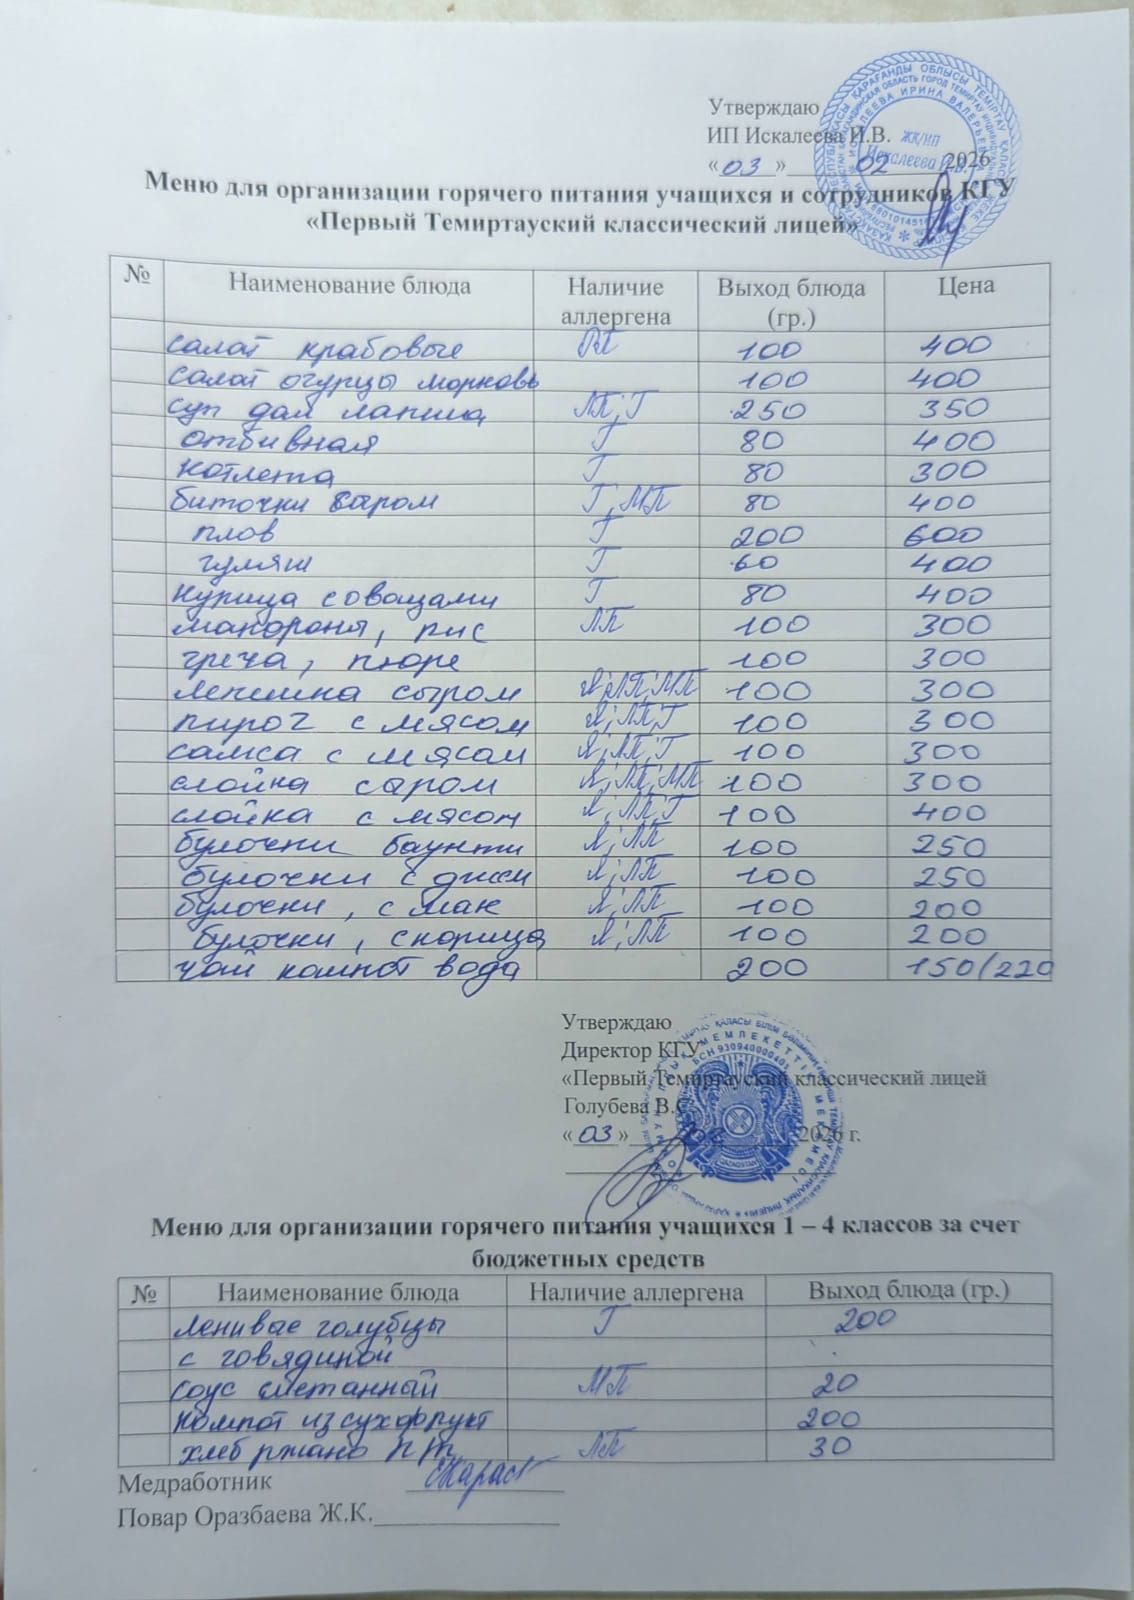 Утверждаю
ИП Искалеева И.В.
« 03 » 02 2026
Меню для организации горячего питания учащихся и сотрудников КГУ
«Первый Темиртауский классический лицей»
№ Наименование блюда Наличие аллергена Выход блюда (гр.) Цена
салат крабовые РП 100 400
салат огурцы морковь 100 400
суп дом лапша ЛП; Г 250 350
отбивная Г 80 400
котлета Г 80 300
биточки сыром Г; МП 80 400
плов Г 200 600
гуляш Г 60 400
курица с овощами Г 80 400
макароны, рис ЛП 100 300
греча, пюре 100 300
лепешка сыром Я; ЛП; МП 100 300
пирог с мясом Я; ЛП; Г 100 300
самса с мясом Я; ЛП; Г 100 300
слойка сыром Я; ЛП; МП 100 300
слойка с мясом Я; ЛП; Г 100 400
булочки баунти Я; ЛП 100 250
булочки с джем Я; ЛП 100 250
булочки, с мак Я; ЛП 100 200
булочки, с корица Я; ЛП 100 200
чай компот вода 200 150/220
Утверждаю
Директор КГУ
«Первый Темиртауский классический лицей
Голубева В.С.
« 03 » 02 2026 г.
Меню для организации горячего питания учащихся 1 – 4 классов за счет
бюджетных средств
№ Наименование блюда Наличие аллергена Выход блюда (гр.)
Ленивые голубцы Г 200
с говядиной
соус сметанный МП 20
компот из сухофрукт 200
хлеб ржано ЛП 30
Медработник
Повар Оразбаева Ж.К.